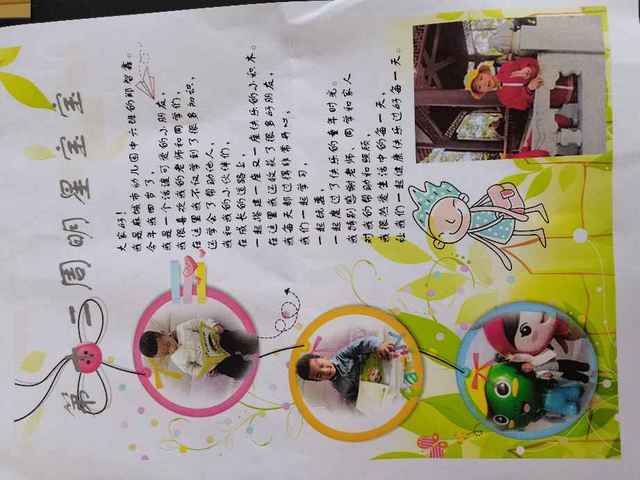 第二周明星宝宝
大家好!
我是在城市幼儿园中六班的邢智鑫。
今年我四岁了,
我是一个活泼可爱的小朋友,
我很喜欢我的老师和同学们,
在这里我不仅学到了很多知识,
还学会了帮助他人,
我和我的小伙伴们,
在成长的道路上,
一起搭建一座又一座快乐的小积木。
在这里我还收获了很多好朋友,
我每天都过得非常开心,
我们一起学习,
一起玩耍,
一起度过了快乐的童年时光。
我特别感谢老师、同学和家人
对我的帮助和照顾,
我很热爱生活中的每一天,
让我们一起健康快乐过好每一天。